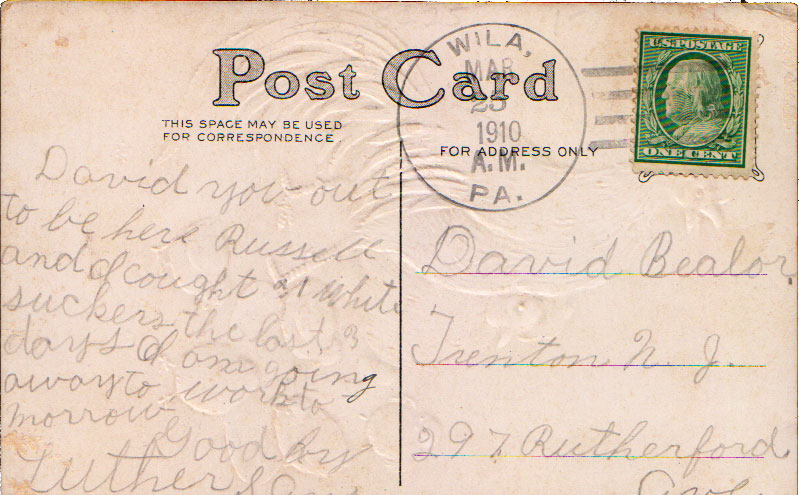 Post Card
THIS SPACE MAY BE USED
FOR CORRESPONDENCE.
FOR ADDRESS ONLY
WILA,
MAR
25
1910
A.M.
PA.
U.S. POSTAGE
ONE CENT
David you out
to be here Russell
and I cought 21 White
suckers the last 3
days I am going
away to work to
morrow
Good by
Luther
David Bealor
Trenton N. J.
297 Rutherford
Ave